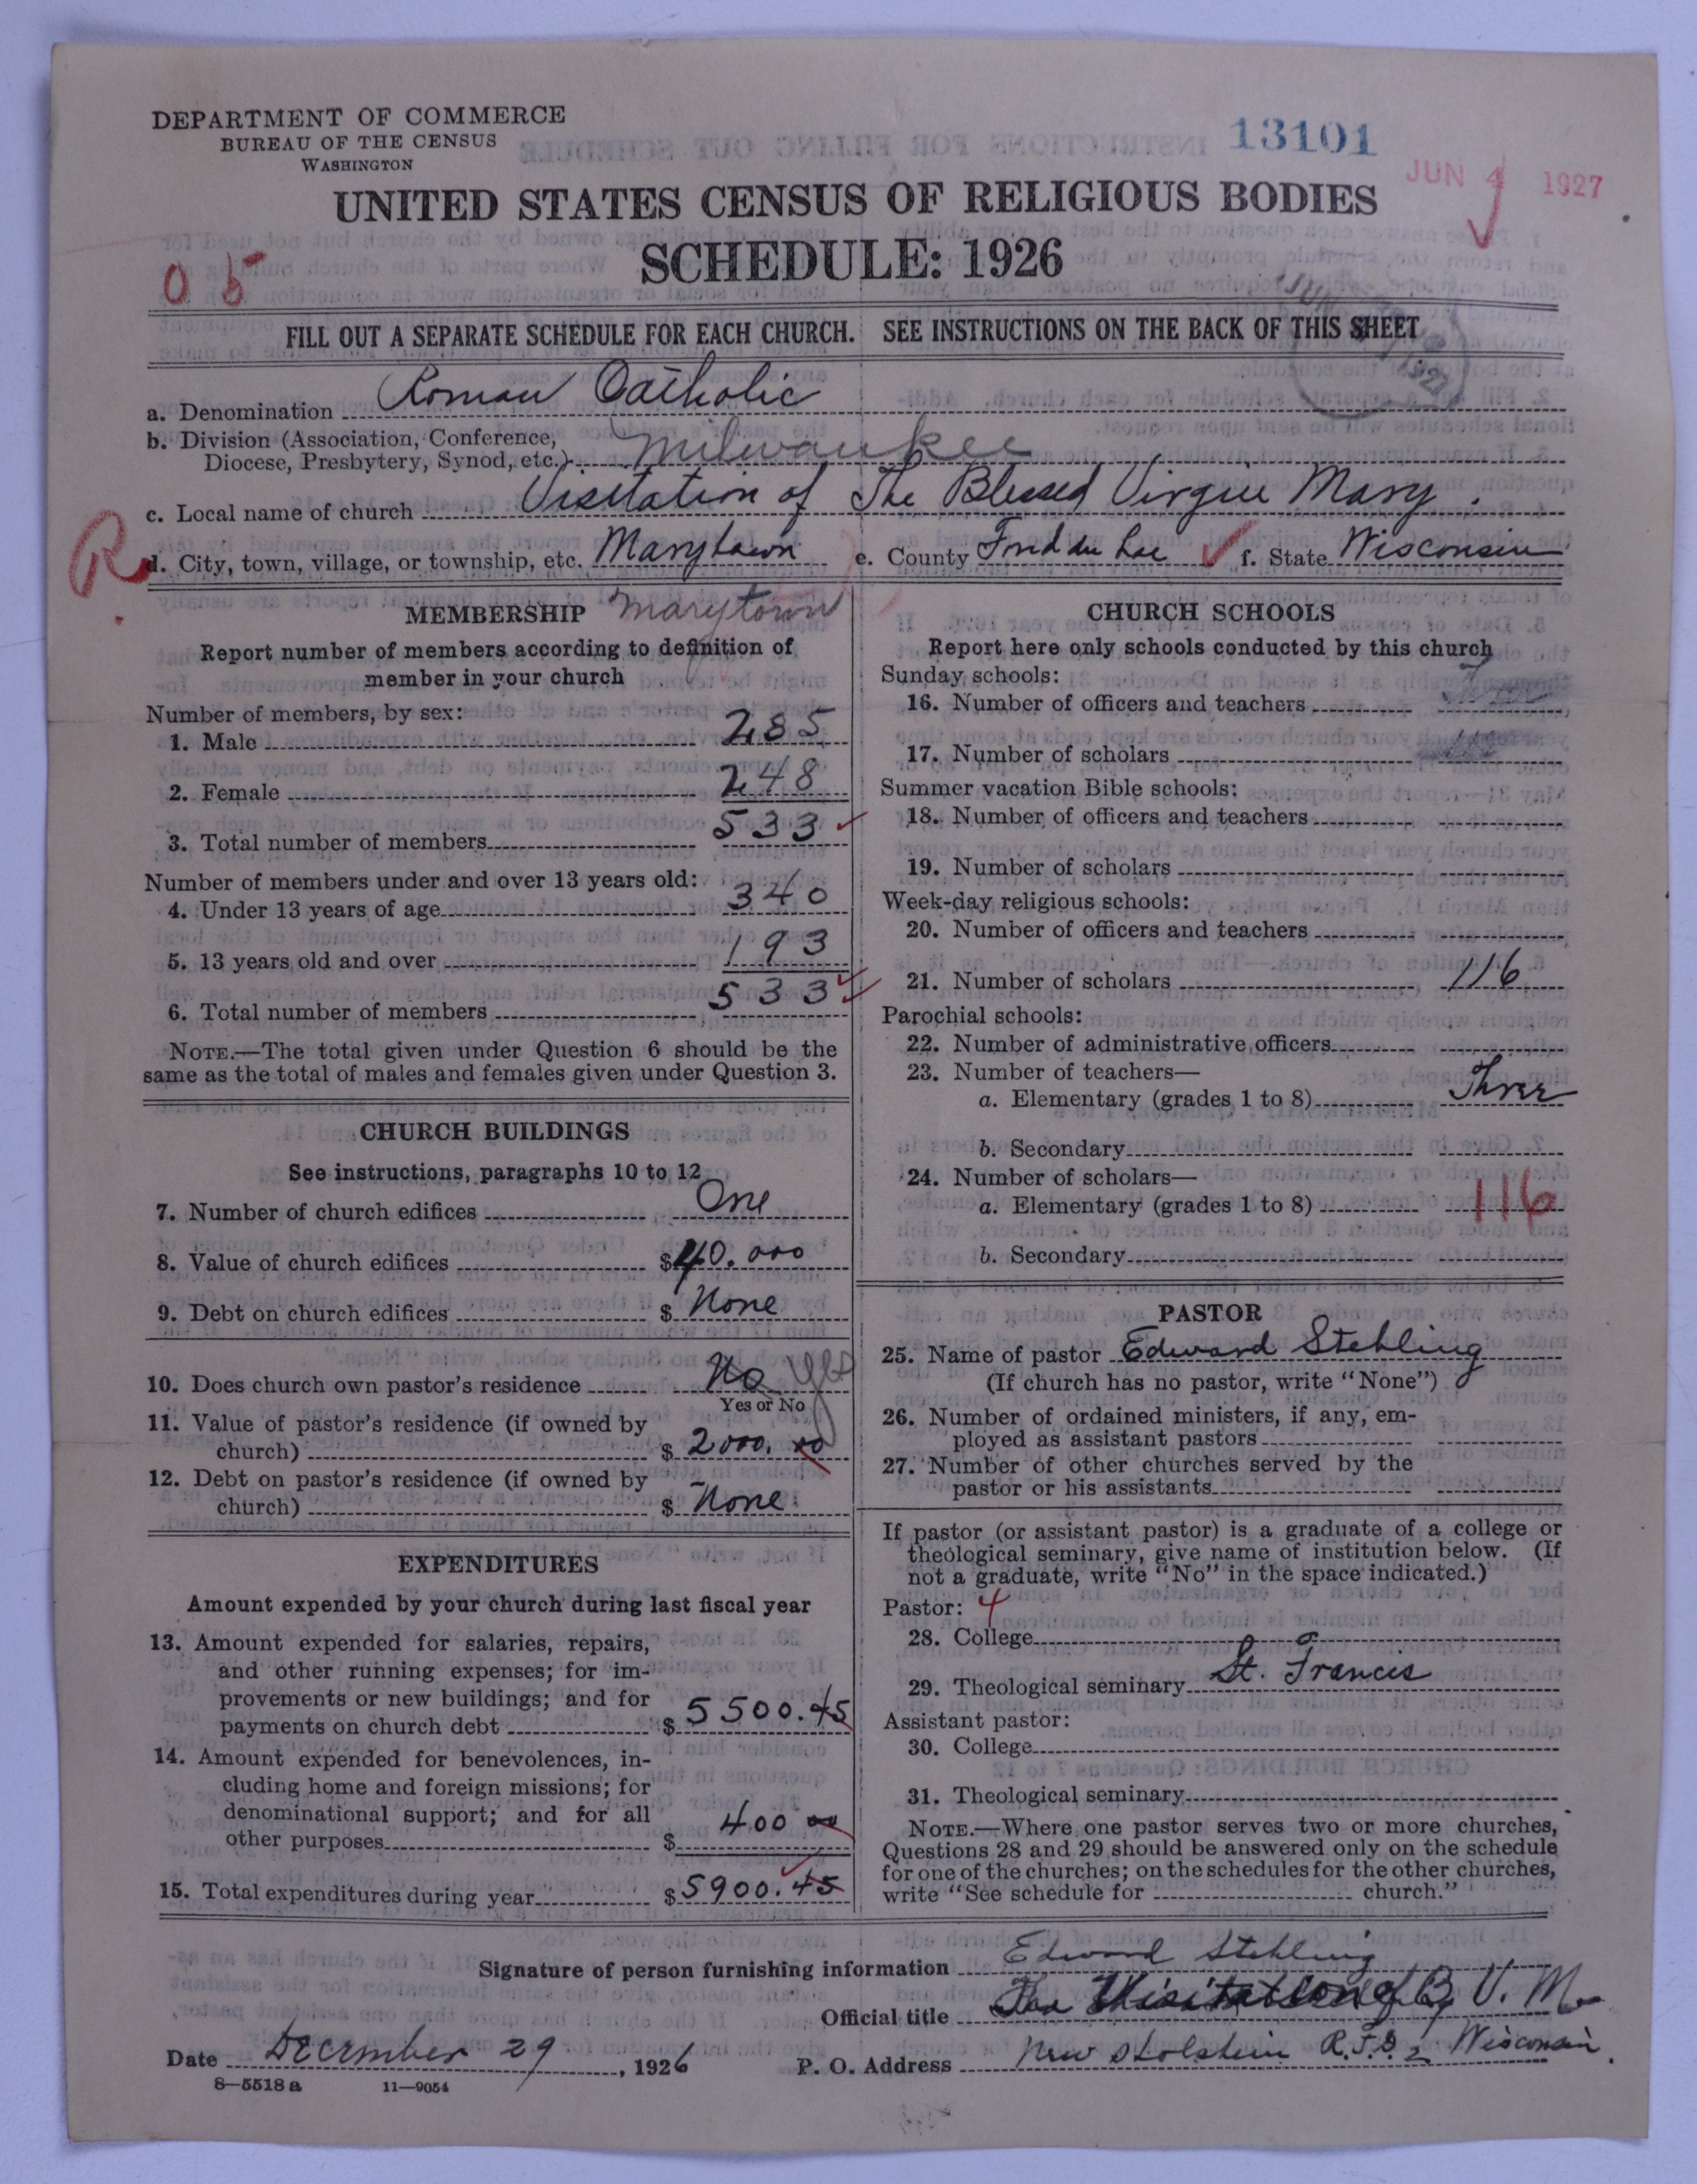 DEPARTMENT OF COMMERCE
BUREAU OF THE CENSUS
WASHINGTON
13101
JUN 4 1927
UNITED STATES CENSUS OF RELIGIOUS BODIES
SCHEDULE: 1926
FILL OUT A SEPARATE SCHEDULE FOR EACH CHURCH. SEE INSTRUCTIONS ON THE BACK OF THIS SHEET
a. Denomination Roman Catholic
b. Division (Association, Conference,
Diocese, Presbytery, Synod, etc.) Milwaukee
c. Local name of church Visitation of The Blessed Virgin Mary.
R d. City, town, village, or township, etc. Marytown e. County Fond du Lac f. State Wisconsin
MEMBERSHIP Marytown
Report number of members according to definition of
member in your church
Number of members, by sex:
1. Male 285
2. Female 248
3. Total number of members 533
Number of members under and over 13 years old:
4. Under 13 years of age 340
5. 13 years old and over 193
6. Total number of members 533
NOTE.—The total given under Question 6 should be the
same as the total of males and females given under Question 3.
CHURCH BUILDINGS
See instructions, paragraphs 10 to 12
7. Number of church edifices One
8. Value of church edifices $40.000
9. Debt on church edifices $ None
10. Does church own pastor's residence No Yes
Yes or No
11. Value of pastor's residence (if owned by
church) $ 2000. 00
12. Debt on pastor's residence (if owned by
church) $ None.
EXPENDITURES
Amount expended by your church during last fiscal year
13. Amount expended for salaries, repairs,
and other running expenses; for im-
provements or new buildings; and for
payments on church debt $ 5500.45
14. Amount expended for benevolences, in-
cluding home and foreign missions; for
denominational support; and for all
other purposes $ 400 00
15. Total expenditures during year $5900.45
CHURCH SCHOOLS
Report here only schools conducted by this church
Sunday schools:
16. Number of officers and teachers
17. Number of scholars
Summer vacation Bible schools:
18. Number of officers and teachers
19. Number of scholars
Week-day religious schools:
20. Number of officers and teachers
21. Number of scholars 116
Parochial schools:
22. Number of administrative officers
23. Number of teachers—
a. Elementary (grades 1 to 8) Three
b. Secondary
24. Number of scholars—
a. Elementary (grades 1 to 8) 116
b. Secondary
PASTOR
25. Name of pastor Edward Stehling
(If church has no pastor, write "None")
26. Number of ordained ministers, if any, em-
ployed as assistant pastors
27. Number of other churches served by the
pastor or his assistants
If pastor (or assistant pastor) is a graduate of a college or
theological seminary, give name of institution below. (If
not a graduate, write "No" in the space indicated.)
Pastor: 4
28. College
29. Theological seminary St. Francis
Assistant pastor:
30. College
31. Theological seminary
NOTE.—Where one pastor serves two or more churches,
Questions 28 and 29 should be answered only on the schedule
for one of the churches; on the schedules for the other churches,
write "See schedule for church."
Signature of person furnishing information Edward Stehling
Official title The Visitation of B. V. M.
Date December 29, 1926 P. O. Address New Holstein R.F.D. 2 Wisconsin.
8—5518 a 11—9054